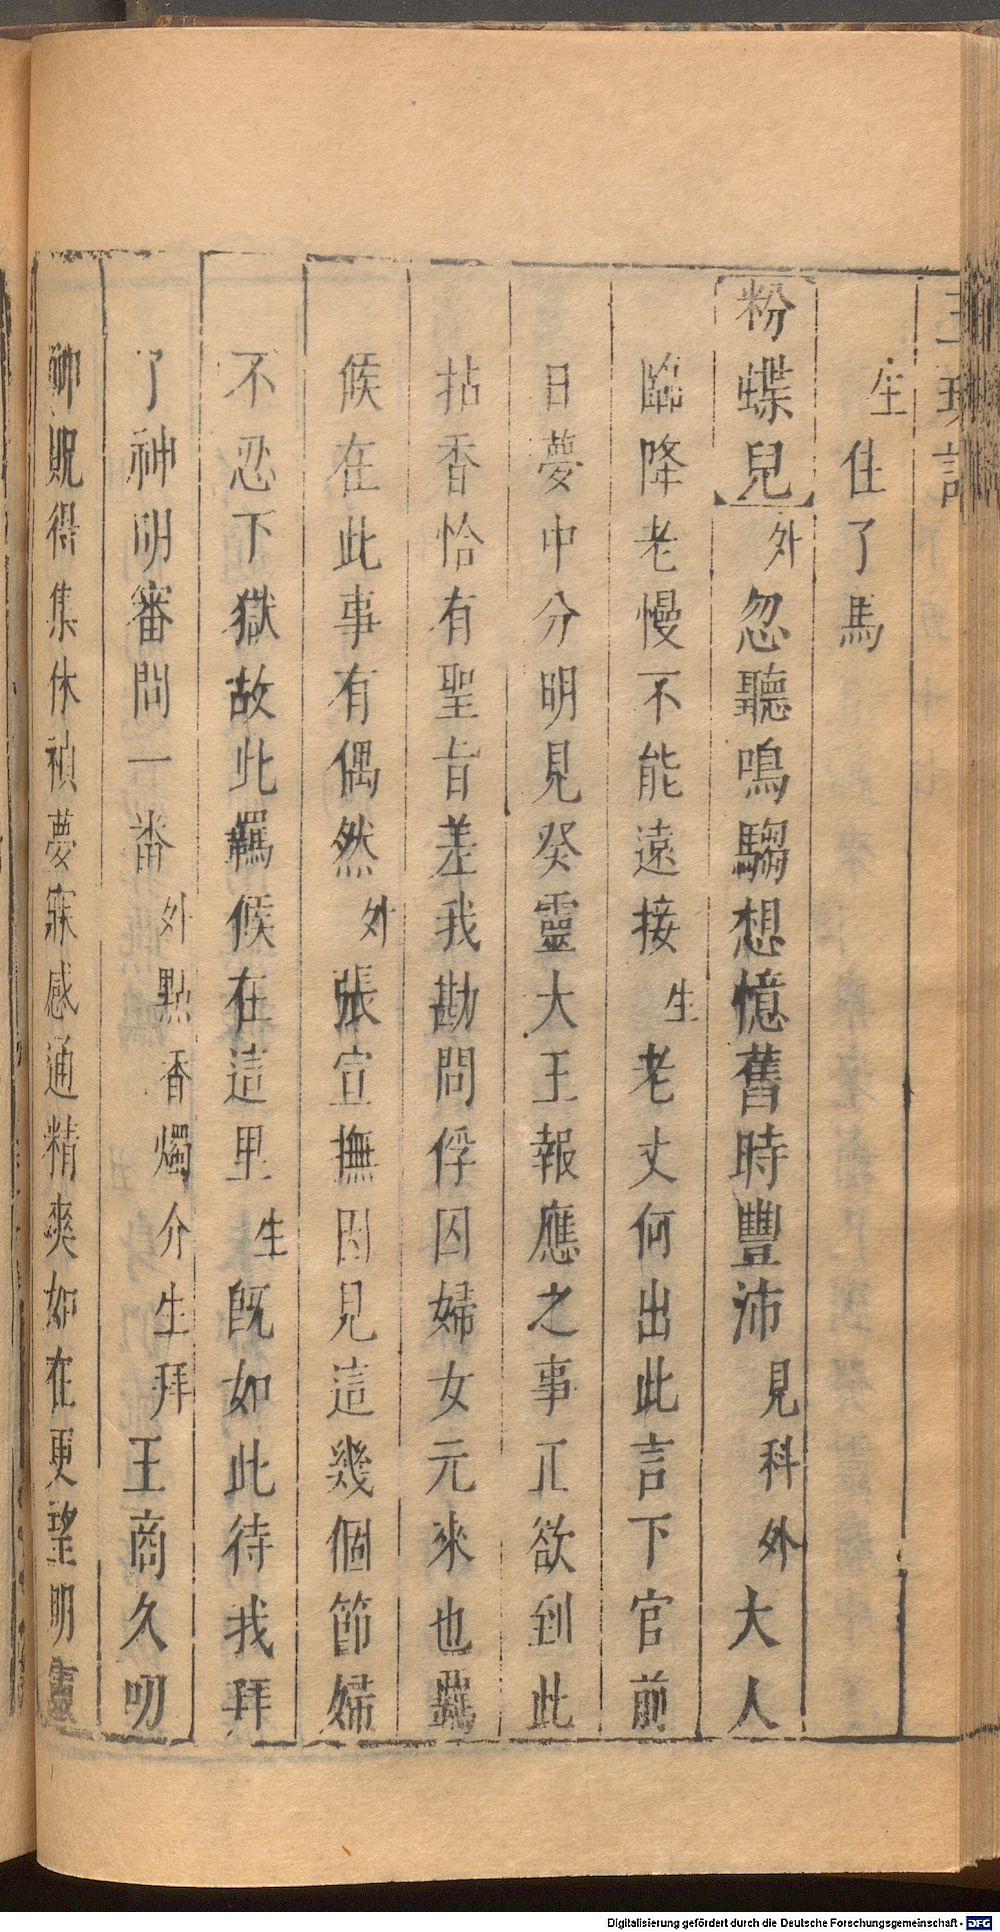 玉玦記
生住了馬
粉蝶兒外忽聽鳴騶想憶舊時豐沛見科外大人
臨降老慢不能遠接生老丈何出此言下官前
日夢中分明見癸靈大王報應之事正欲到此
拈香恰有聖旨差我勘問俘囚婦女元來也羈
候在此事有偶然外張宣撫因見這幾個節婦
不忍下獄故此羈候在這里生旣如此待我拜
了神明審問一番外點香燭介生拜王商久叨
卿貺得集休禎夢寐感通精爽如在更望明靈
Digitalisierung gefördert durch die Deutsche Forschungsgemeinschaft - DFG